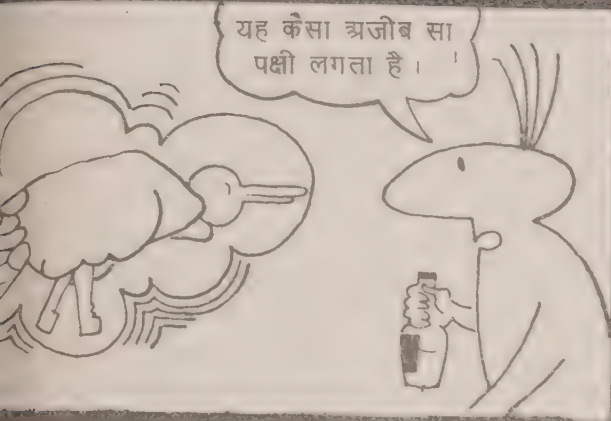 यह कैसा अजीब सा
पक्षी लगता है।